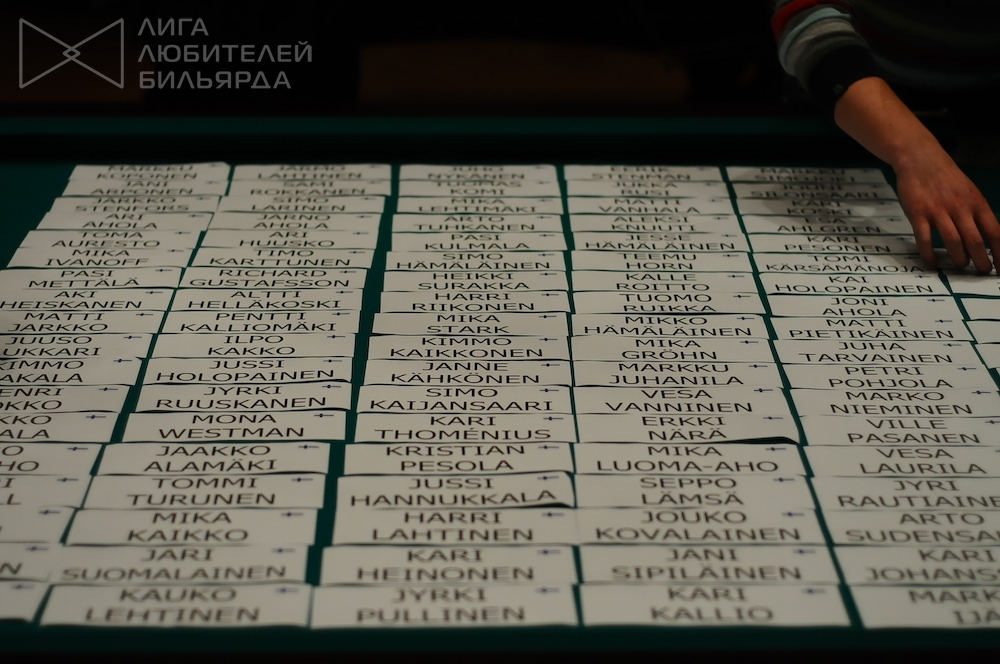 ЛИГА
ЛЮБИТЕЛЕЙ
БИЛЬЯРДА
MARKKU
KOPONEN
JANI
ARPONEN
JARKKO
STENFORS
ARI
AHOLA
AURESTO
MIKA
IVANOFF
PASI
METTÄLÄ
AKI
HEISKANEN
MATTI
JARKKO
JUUSO
UKKARI
KIMMO
AKALA
ENRI
OKKO
KKO
ALA
JARMO
LAHTINEN
SAMI
ROKKANEN
SIMO
LARINEN
JARNO
AHOLA
ARI
HUUSKO
TIMO
KARTTUNEN
RICHARD
GUSTAFSSON
ALTTI
HELLÄKOSKI
PENTTI
KALLIOMÄKI
ILPO
KAKKO
JUSSI
HOLOPAINEN
JYRKI
RUUSKANEN
MONA
WESTMAN
JAAKKO
ALAMÄKI
TOMMI
TURUNEN
MIKA
KAIKKO
JARI
SUOMALAINEN
KAUKO
LEHTINEN
JUHO
NYKÄNEN
TUOMAS
TOMI
MIKA
LEHTIMÄKI
ARTO
TUHKANEN
PASI
KULMALA
SIMO
HÄMÄLÄINEN
HEIKKI
SURAKKA
HARRI
RIIKONEN
MIKA
STARK
KIMMO
KAIKKONEN
JANNE
KÄHKÖNEN
SIMO
KAIJANSAARI
KARI
THOMÉNIUS
KRISTIAN
PESOLA
JUSSI
HANNUKKALA
HARRI
LAHTINEN
KARI
HEINONEN
JYRKI
PULLINEN
EERIK
JUKKA
RUSI
MATTI
VANHALA
ALEKSI
KNUUTI
JESSE
HÄMÄLÄINEN
TEEMU
HORN
KALLE
ROITTO
TUOMO
RUIKKA
MIKKO
HÄMÄLÄINEN
MIKA
GRÖHN
MARKKU
JUHANILA
VESA
VANNINEN
ERKKI
NÄRÄ
MIKA
LUOMA-AHO
SEPPO
LÄMSÄ
JOUKO
KOVALAINEN
JANI
SIPILÄINEN
KARI
KALLIO
AHLGREN
KARI
PESONEN
TOMI
KÄRSÄMÄNOJA
KAI
HOLOPAINEN
JONI
AHOLA
MATTI
PIETIKÄINEN
JUHA
TARVAINEN
PETRI
POHJOLA
MARKO
NIEMINEN
VILLE
PASANEN
VESA
LAURILA
JYRI
RAUTIAINE
ARTO
SUDENSA
KARI
JOHANS
MARK
IJÄ